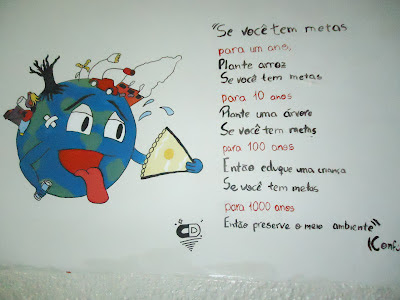 "Se você tem metas
para um ano,
Plante arroz
Se você tem metas
para 10 anos
Plante uma árvore
Se você tem metas
para 100 anos
Então eduque uma criança
Se você tem metas
para 1000 anos
Então preserve o meio ambiente"
(Confu
CD